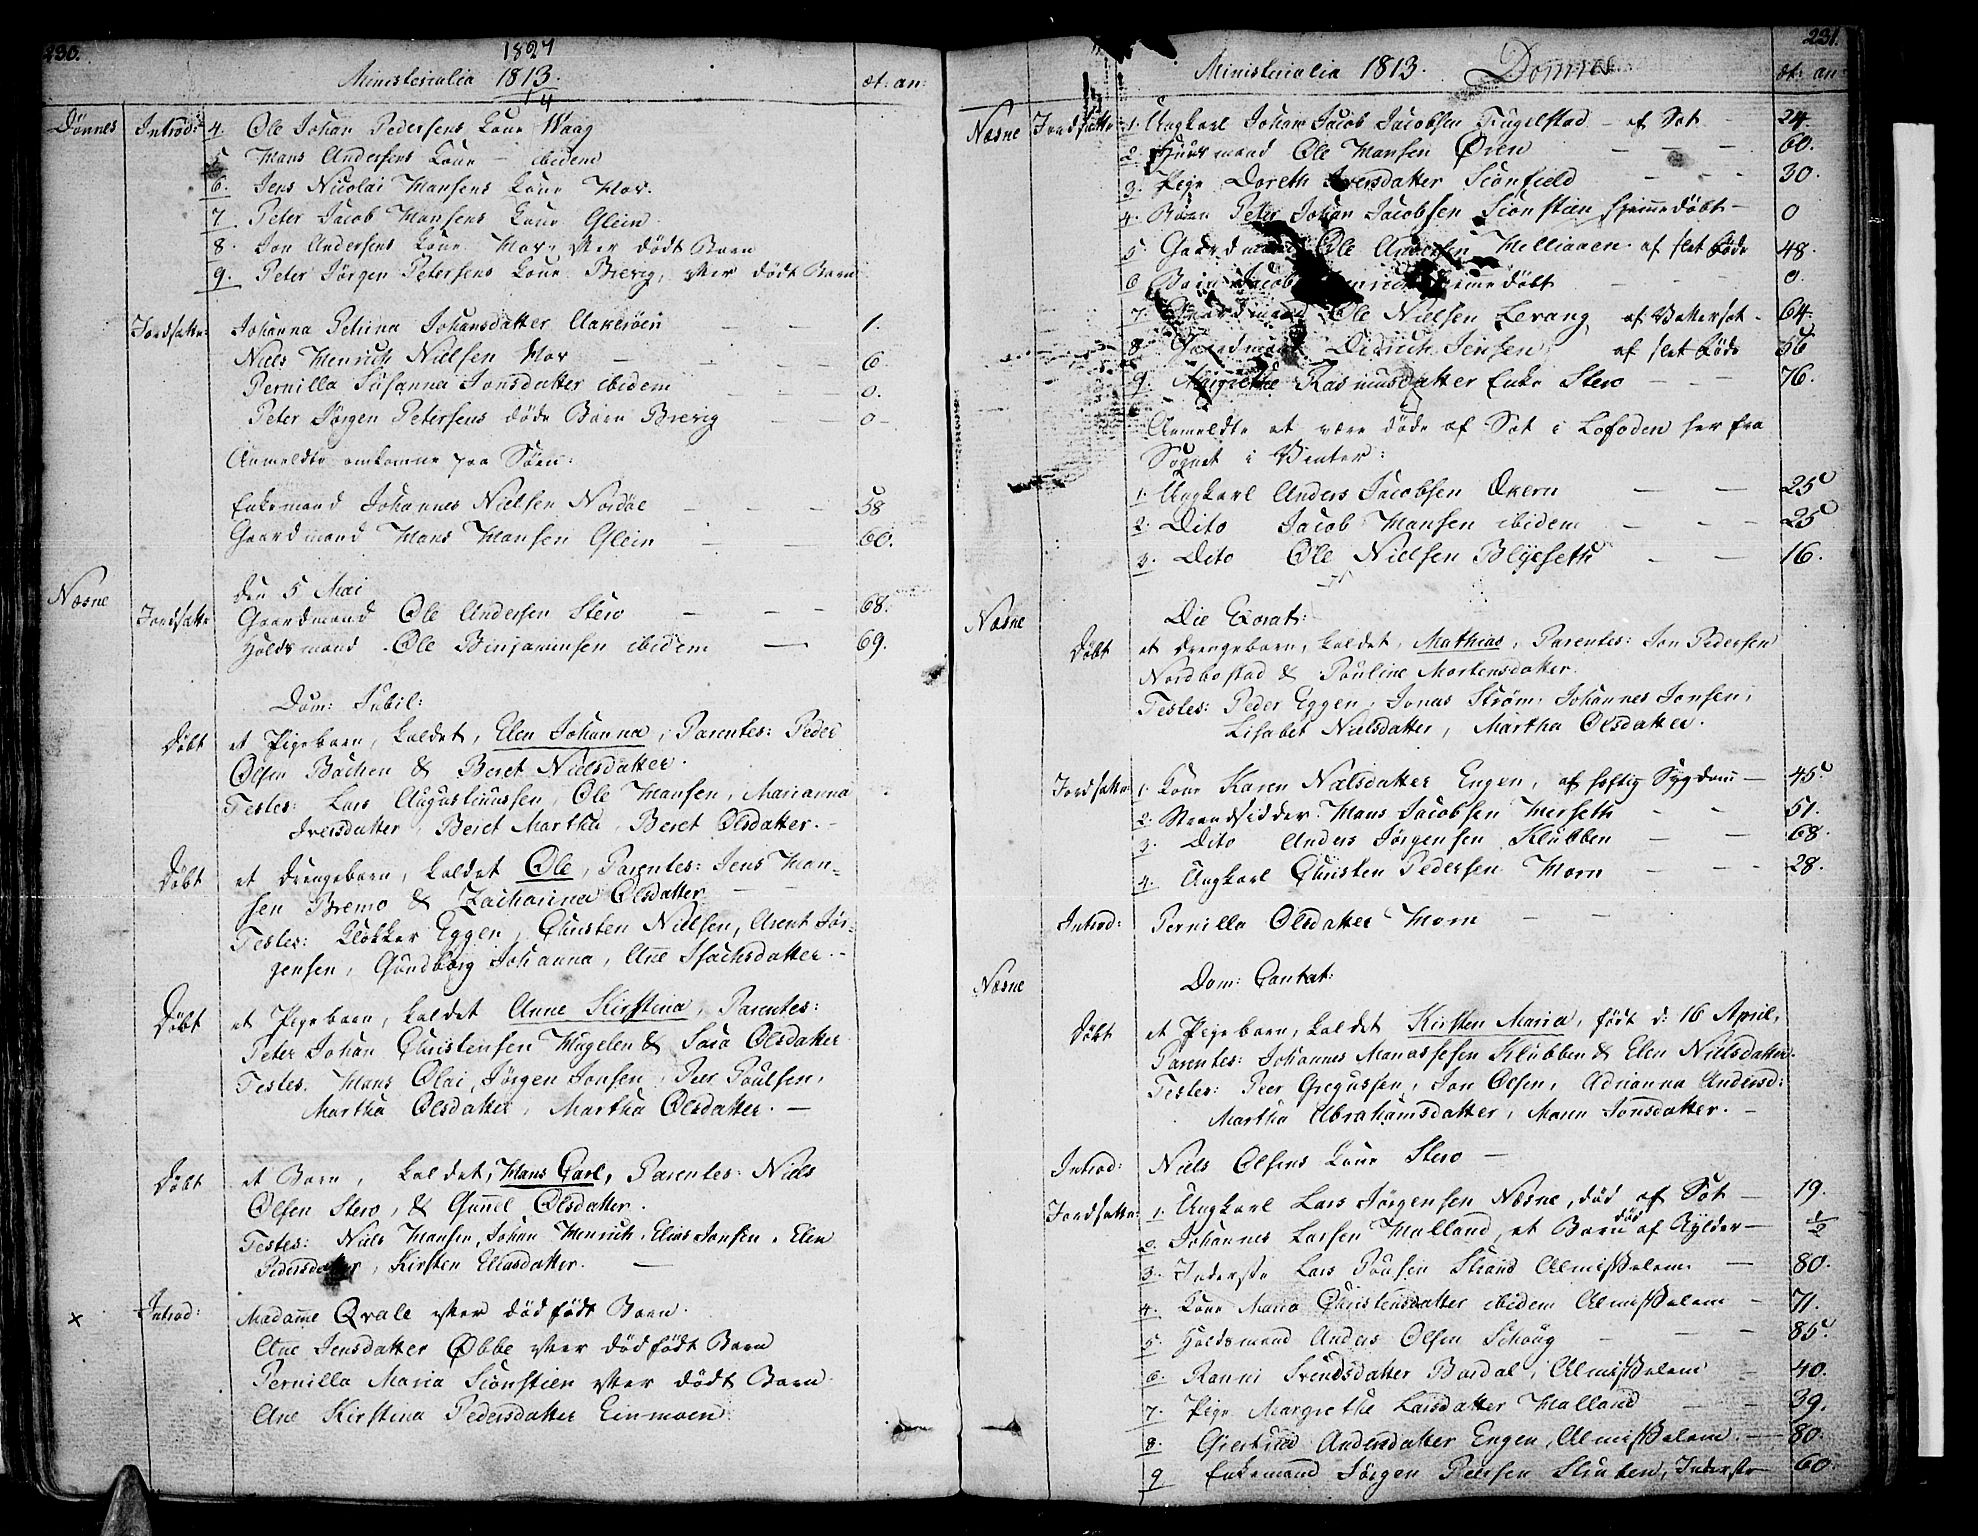 230.
1827
Ministerialia 1813.
14
æt: an:
Dønnes Introd: 4. Ole Johan Pedersens Kone Waag
5 Hans Andersens Kone — ibidem
6. Jens Nicolai Hansens Kone Hov.
7 Peter Jacob Hansens Kone Glein
8. Jon Andersens Kone Hov. efter dødt Barn
9. Peter Jörgen Petersens Kone Brevig, efter dødt Barn
Jordsatte: Johanna Petrina Johansdatter Aakeröen — 1.
Niels Henrich Nielsen Hov — 6
Pernilla Susanna Jonsdatter ibidem — 0.
Peter Jörgen Petersens døde Barn Brevig — 0
Anmeldte omkomne paa Søen:
Enkemand Johannes Nielsen Nordøe — 58
Gaardmand Hans Hansen Glein — 60.
Næsne den 5 Mai
Jordsatte Gaardmand Ole Andersen Stero — 68.
Holdsmand Ole Benjaminsen ibidem — 69.
Dom: Jubil:
Døbt et Pigebarn, kaldet, Elen Johanna, Parentes: Peder
Olsen Bachen & Beret Nielsdatter.
Testes: Lars Augustinussen, Ole Hansen, Marianna
Iversdatter, Beret Martha, Beret Olsdatter. —
Døbt et Drengebarn, kaldet Ole, Parentes: Jens Han-
sen Bremo & Zacharina Olsdatter
Testes: Klokker Eggen, Christen Nielsen, Arent Jör-
gensen, Gundborg Johanna, Ane Isachsdatter. —
Døbt et Pigebarn, kaldet Anne Kirstina, Parentes:
Peter Johan Christensen Hugelen & Sara Olsdatter
Testes: Hans Olai, Jörgen Jonsen, Peer Poulsen,
Martha Olsdatter, Martha Olsdatter. —
Døbt et Barn, kaldet, Hans Carl, Parentes: Niels
Olsen Stero, & Gunnel Olsdatter.
Testes: Niels Hansen, Johan Henrich, Elias Jonsen, Elen
Pedersdatter, Kirsten Eliasdatter. —
x Introd: Madame Qvale efter dødfødt Barn.
Ane Jensdatter Øbbe efter dødfødt Barn
Pernilla Maria Sionstien efter dødt Barn
Ane Kirstina Pedersdatter Einmoen.
231.
Ministerialia 1813. Dønnes
æt: an:
Næsne Jordsatte: 1. Ungkarl Johan Jacob Jacobsen Fugelstad — af Sot — 24.
2. Huusmand Ole Hansen Øien — 60.
3. Pige Doreth Iversdatter Sionfield — 30.
4. Barn Peter Johan Jacobsen Sionstien hjemmedøbt — 0
5 Gaardmand Ole Andersen Hellianen af slet Føde 48.
6 Barn Jacob Henrich hjemmedøbt — 0.
7. Gaardmand Ole Nielsen Levang af Vattersot — 64.
8 Gaardmand Didrich Jensen af slet Føde 56
9. Margrethe Rasmusdatter Enke Stero — 76.
Anmeldte at være døde af Sot i Lofoden her fra
Sognet i Vinter:
1. Ungkarl Anders Jacobsen Økern — 25
2. Dito Jacob Hansen ibidem — 25
3. Dito Ole Nielsen Blyeseth — 16.
Næsne Die Exorat:
Døbt et Drengebarn, kaldet, Mathias, Parentes: Jon Pedersen
Nordbostad & Pauline Mortensdatter.
Testes: Peder Eggen, Jonas Strøm, Johannes Jonsen,
Lisabet Nielsdatter, Martha Olsdatter.
Jordsatte: 1. Kone Karen Nielsdatter Engen, af heftig Sygdom — 45.
2. Strandsidder Hans Jacobsen Herseth — 51.
3. Dito Anders Jörgensen Klubben — 68.
4. Ungkarl Christen Pedersen Horn — 28.
Introd: Pernilla Olsdatter Horn —
Næsne Dom: Cantat:
Døbt et Pigebarn, kaldet Kirsten Maria, født d: 16 April,
Parentes: Johannes Manassesen Klubben & Elen Nielsdatter.
Testes: Peer Gregussen, Jon Olsen, Adrianna Andersd:
Martha Abrahamsdatter, Maren Jonsdatter. —
Introd: Niels Olsens Kone Stero —
Jordsatte: 1. Ungkarl Lars Jörgensen Næsne, død af Sot — 19.
2. Johannes Larsen Halland, et Barn død af Kylder — 1/2
3. Inderste Lars Poulsen Strand Almisselem. — 80.
4. Kone Maria Christensdatter ibidem Almisselem — 71.
5. Holdsmand Anders Olsen Schoug — 85.
6. Ranni Svendsdatter Bardal, Almisselem — 40.
7. Pige Margrethe Larsdatter Halland — 39.
8. Giertrud Andersdatter Engen, Almisselem. — 80.
9 Enkemand Jörgen Peersen Inderste — 60.